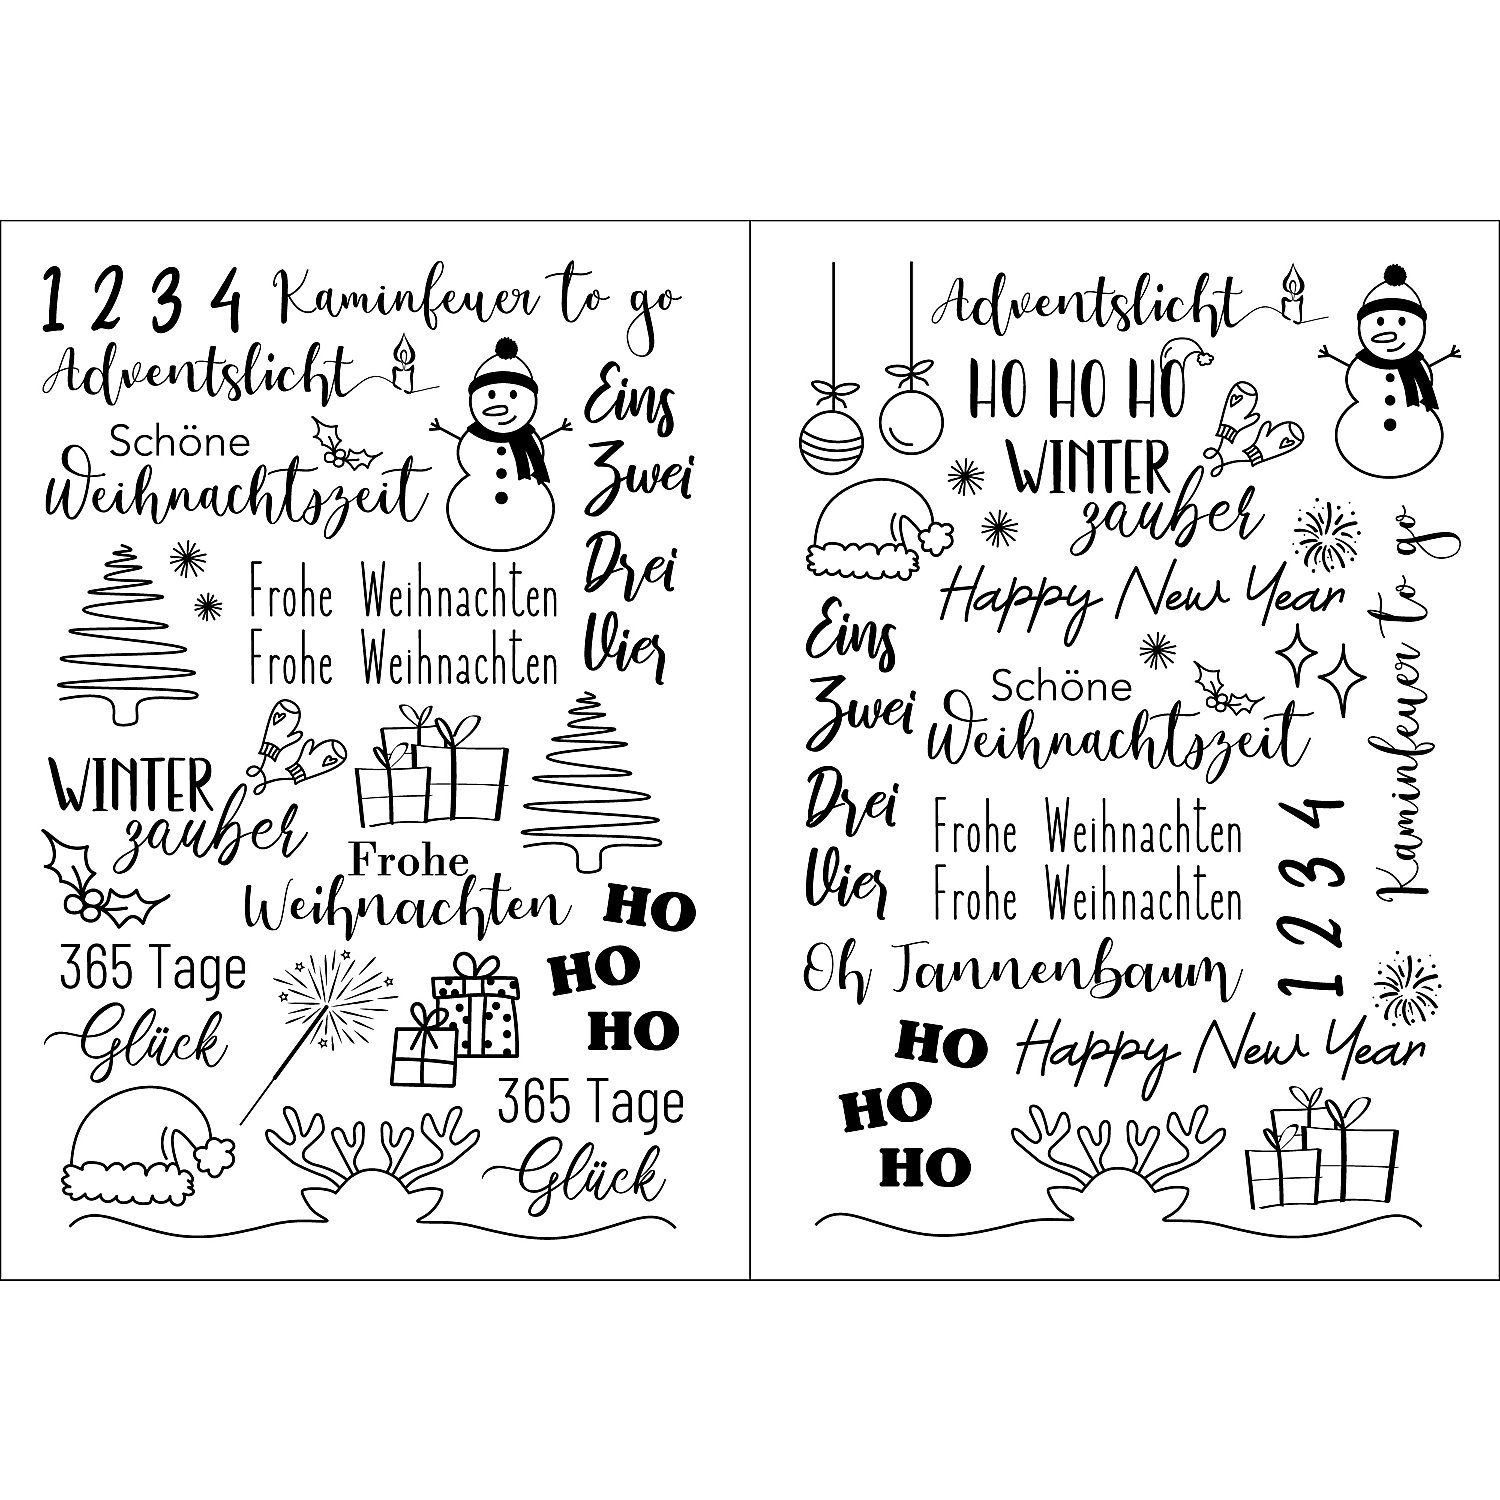 1 2 3 4 Kaminfeuer to go
Adventslicht
Schöne
Weihnachtszeit
Eins
Zwei
Drei
Vier
Frohe Weihnachten
Frohe Weihnachten
WINTER
zauber
Frohe
Weihnachten
HO
HO
HO
365 Tage
Glück
365 Tage
Glück
Adventslicht
HO HO HO
WINTER
zauber
Happy New Year
Eins
Zwei
Drei
Vier
Schöne
Weihnachtszeit
Kaminfeuer to go
Frohe Weihnachten
Frohe Weihnachten
1 2 3 4
Oh Tannenbaum
HO
HO
HO
Happy New Year